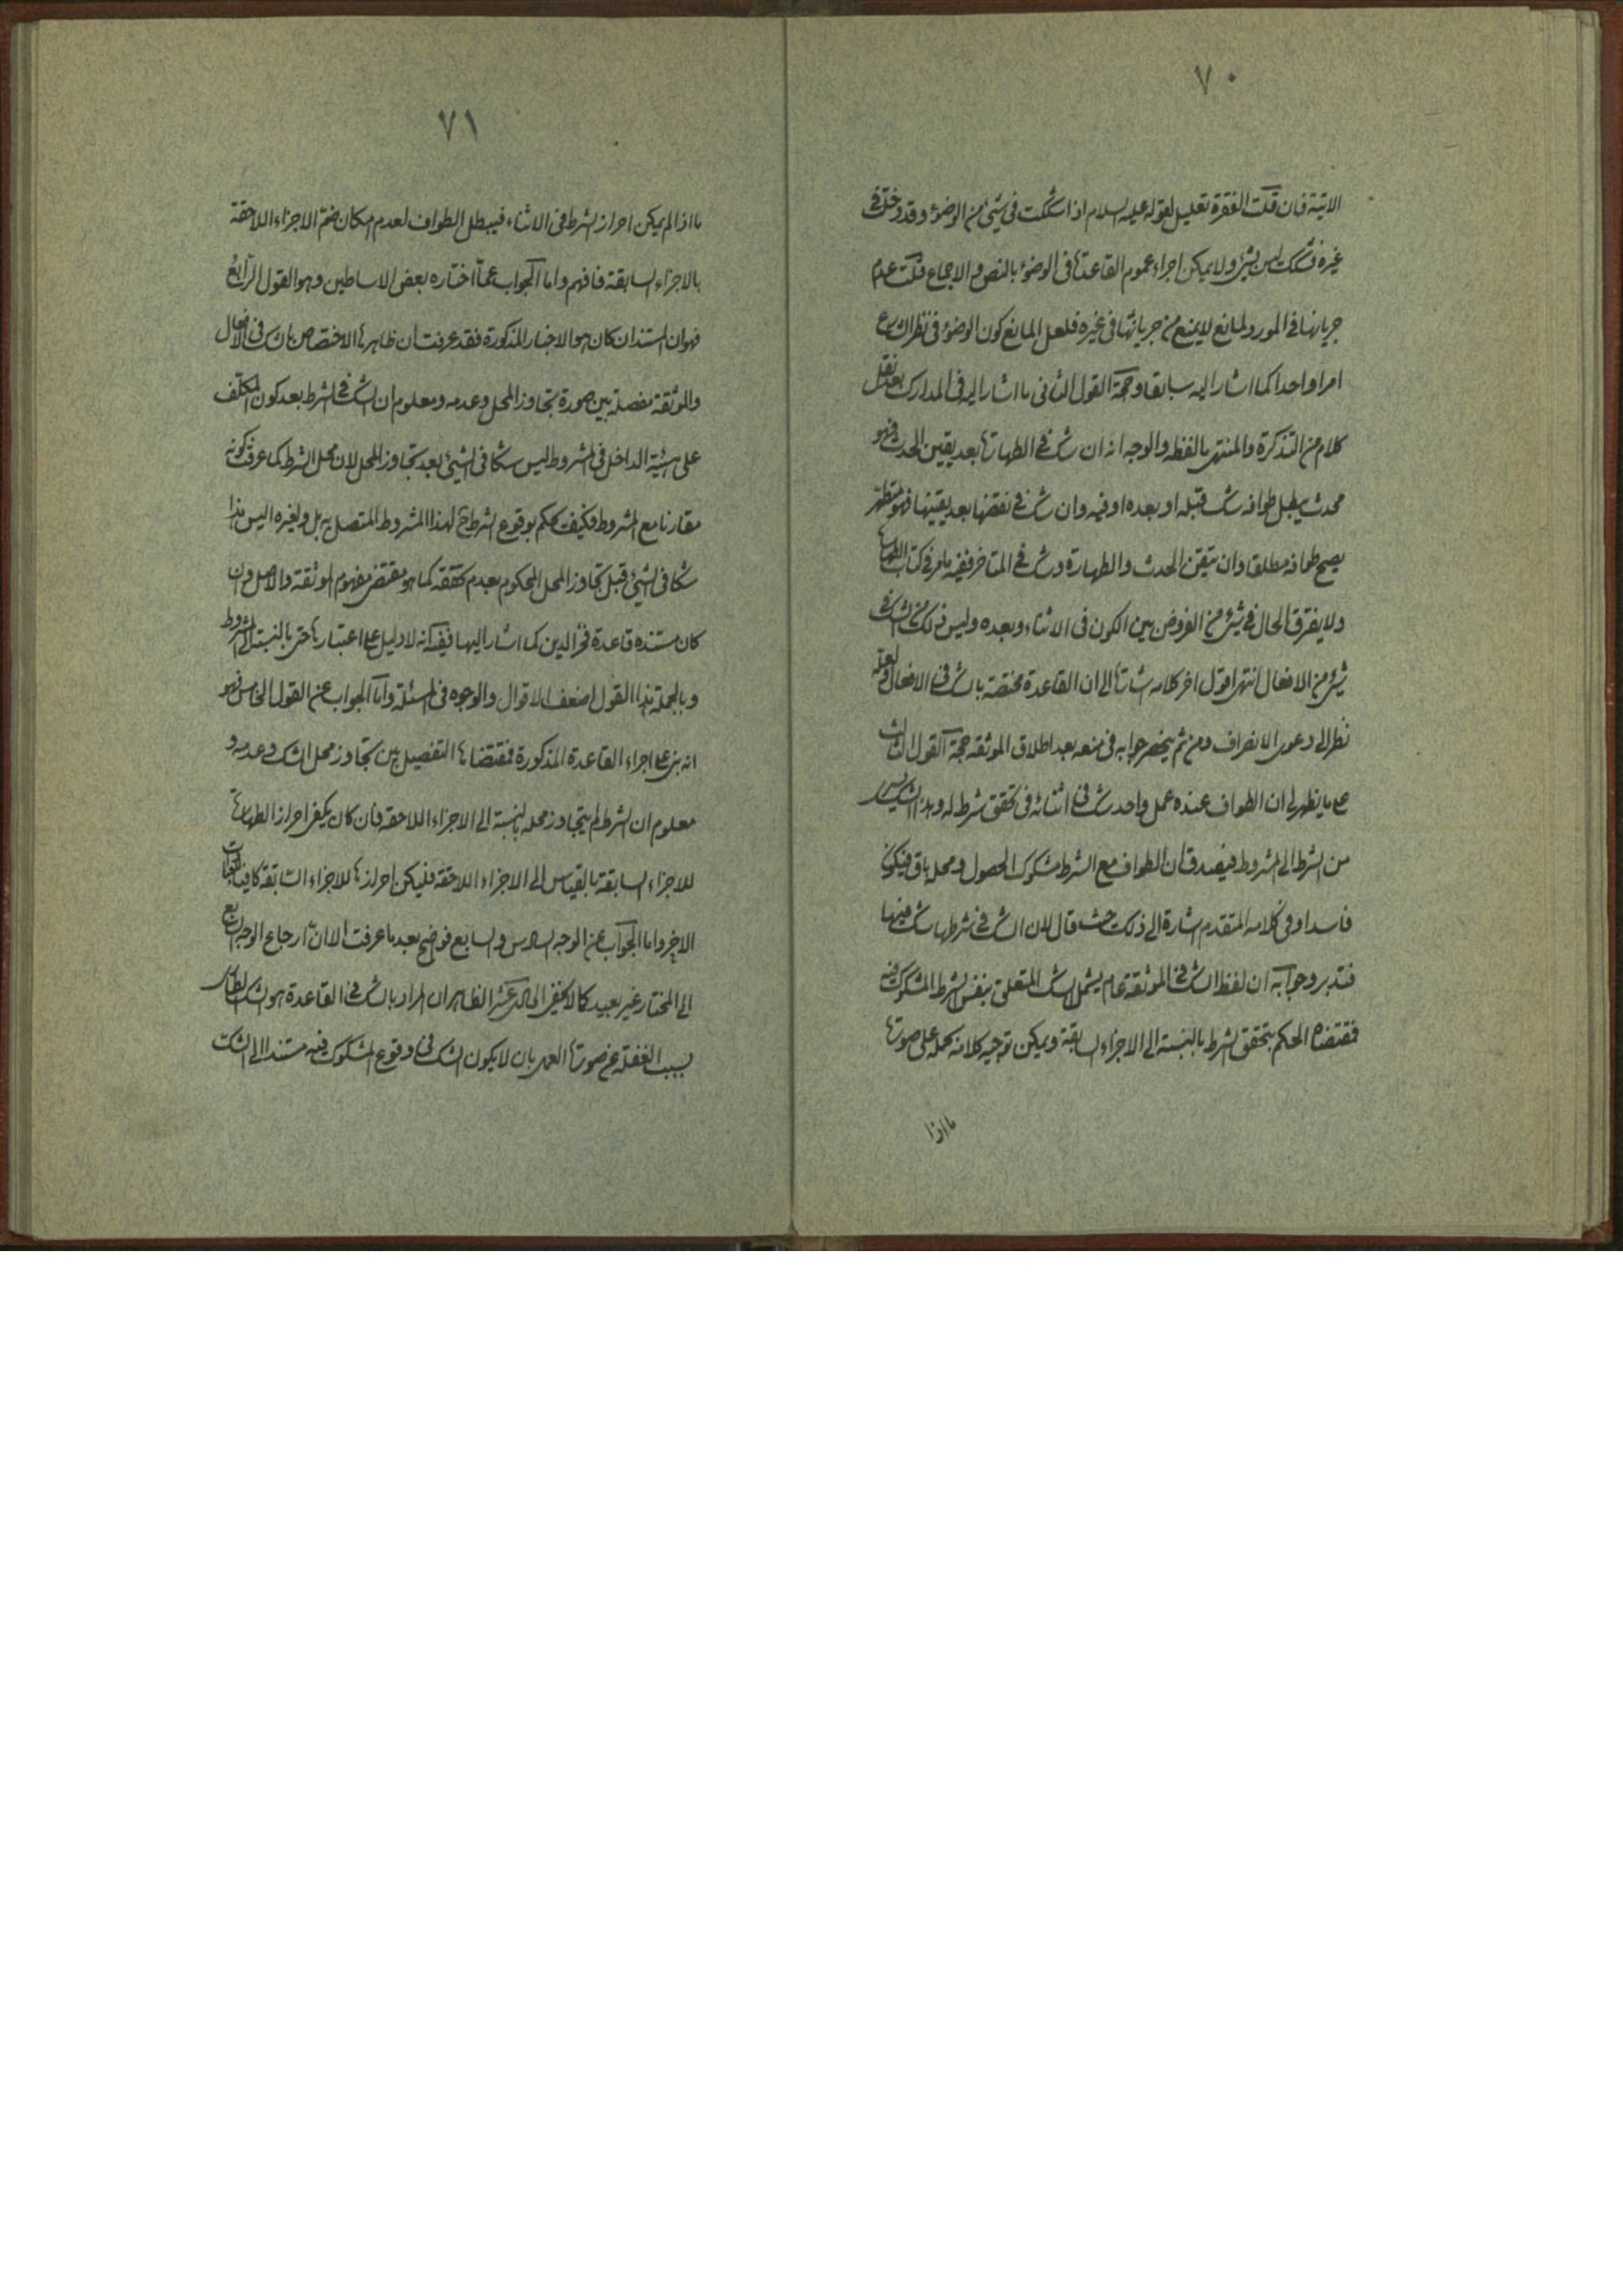 ٧٠
الاتية فان قلت الفقرة تعليل لقوله عليه السلام اذا شككت في شيئ من الوضوء وقد دخلت في
غيره فشكك ليس بشيئ ولا يمكن اجراء عموم القاعدة في الوضوء بالنص والاجماع قلت عدم
جريانها في المورد لمانع لا يمنع من جريانها في غيره فلعل المانع كون الوضوء في نظر الشارع
امرا واحدا كما اشار اليه سابقا وحجة القول الثاني ما اشار اليه في المدارك بعد نقل
كلام من التذكرة والمنتهى بالفظه والوجه انه ان شك في الطهارة بعد يقين الحدث فهو
محدث يبطل طوافه شك قبله او بعده او فيه وان شك في نقضها بعد يقينها فهو متطهر
يصح طوافه مطلقا وان تيقن الحدث والطهارة وشك في المتاخر ففيه ما مر في كتاب الطهارة
ولا يفرق الحال في شيئ من الفروض بين الكون في الاثناء وبعده وليس ذلك من الشك في
شيئ من الافعال انتهى اقول اخر كلامه اشارة الى ان القاعدة مختصة بالشك في الافعال ولعله
نظر الى دعوى الانصراف ومن ثم ينحصر جوابه في منعه بعد اطلاق الموثقة حجة القول الثالث
على ما يظهر لي ان الطواف عنده عمل واحد شك في اثنائه في تحقق شرط له وهذا الشك ليس
من الشرط الى المشروط فيصدق ان الطواف مع الشرط مشكوك الحصول ومحله باق فيكون
فاسدا وفي كلامه المتقدم اشارة الى ذلك حيث قال لان الشك في شرطها شك فيها
فتدبر وجوابه ان لفظ الشك في الموثقة عام يشمل الشك المتعلق بنفس الشرط المشكوك فيه
فمقتضاه الحكم بتحقق الشرط بالنسبة الى الاجزاء السابقة ويمكن توجيه كلامه بحمله على صورة
ما اذا
٧١
ما اذا لم يمكن احراز الشرط في الاثناء فيبطل الطواف لعدم امكان ضم الاجزاء اللاحقة
بالاجزاء السابقة فافهم واما الجواب عما اختاره بعض الاساطين وهو القول الرابع
فهو ان المستند ان كان هو الاخبار المذكورة فقد عرفت ان ظاهرها الاختصاص بالشك في الافعال
والموثقة مفصلة بين صورة تجاوز المحل وعدمه ومعلوم ان الشك في الشرط بعد كون المكلف
على هيئة الداخل في المشروط ليس شكا في الشيئ بعد تجاوز المحل لان محل الشرط كما عرفت كونه
مقارنا مع المشروط فكيف يحكم بوقوع الشرط ح لهذا المشروط المتصل به بل ولغيره اليس هذا
شكا في الشيئ قبل تجاوز المحل المحكوم بعدم تحققه كما هو مقتضى مفهوم الموثقة والاصل وان
كان مستنده قاعدة فخر الدين كما اشار اليها ففيه انه لا دليل على اعتبارها حتى بالنسبة الى المشروط
وبالجملة هذا القول اضعف الاقوال والوجوه في المسئلة واما الجواب عن القول الخامس فهو
انه بنى على اجراء القاعدة المذكورة فمقتضاها التفصيل بين تجاوز محل الشك وعدمه و
معلوم ان الشرط لم يتجاوز محله بالنسبة الى الاجزاء اللاحقة فان كان يكفي احراز الطهارة
للاجزاء السابقة بالقياس الى الاجزاء اللاحقة فليكن احرازها للاجزاء السابقة كافيا
الاخر واما الجواب عن الوجه السادس والسابع فواضح بعد ما عرفت الا ان ارجاع الوجه السابع
الى المختار غير بعيد كما لا يخفى الحادي عشر الظاهر ان المراد بالشك في القاعدة هو الشك الطاري
بسبب الغفلة عن صورة العمل بان لا يكون الشك في وقوع المشكوك فيه مستندا الى الشك